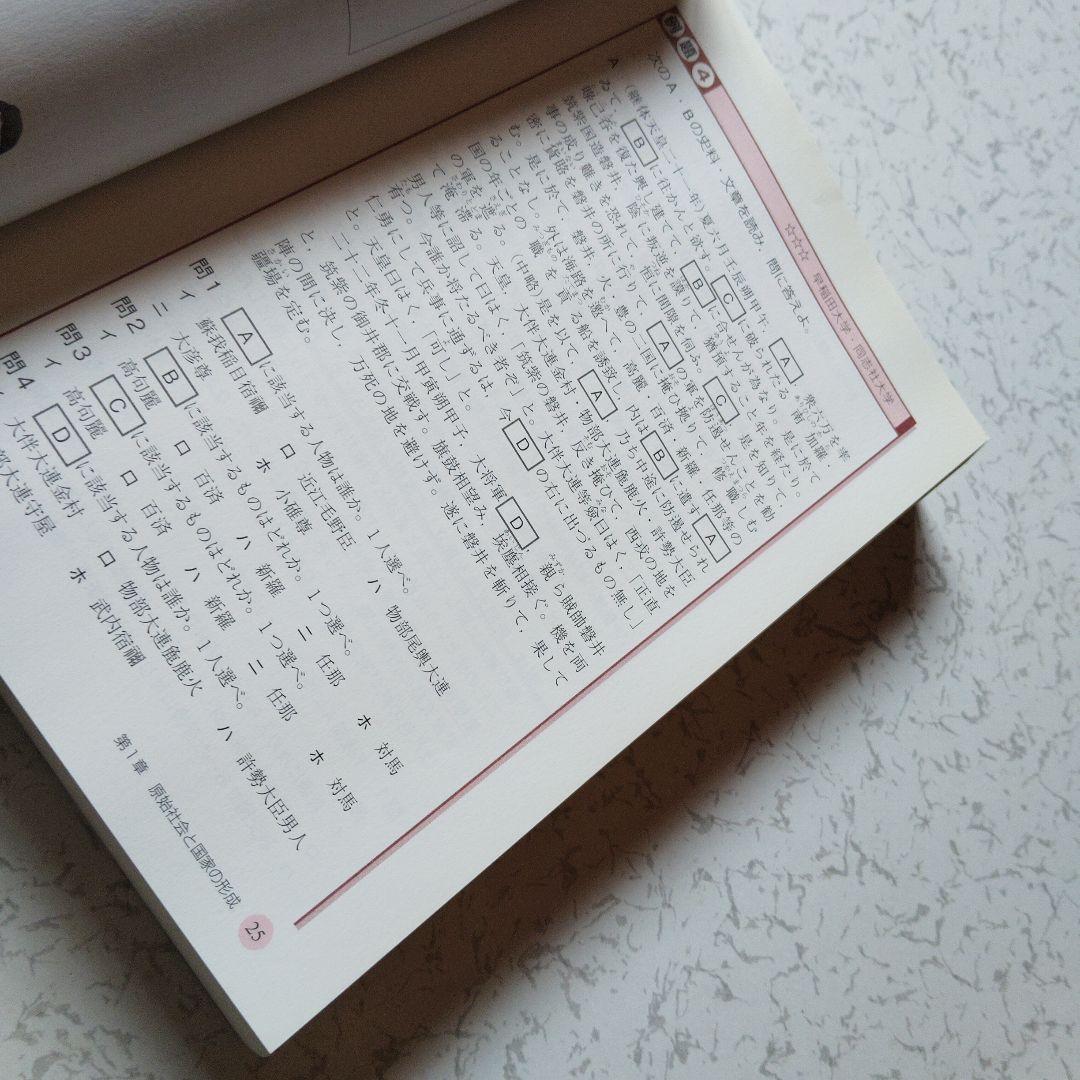 例題4 ☆☆☆ 早稲田大学・同志社大学
次のA・Bの史料・文章を読み，問に答えよ。
A （継体天皇二十一年）夏六月壬辰朔甲午， A ，衆六万を率
ゐて B に往かんと欲す。 C に破られたる南加羅・
㖨己呑を復た興し進てて B に合せんが為なり。是に於て
筑紫国造磐井，陰に叛逆を謨りて，猶預すること年を経たり。
事の成り難きを恐れて，恒に間隙を伺ふ。 C ，是を知りて
密に貨賂を磐井の所に行りて， A の軍を防遏せんことを勧
む。是に於て，磐井，火・豊の二国に掩ひ拠りて，修職しむ
ることなし。外は海路を邀へて，高麗・百済・新羅・任那等の
国の年ごとの職を貢る船を誘致し，内は B に遣す A
の軍を遮る。（中略）是を以て， A ，乃ち中途に防遏せられ
て淹滞る。天皇，大伴大連金村・物部大連麁鹿火・許勢大臣
男人等に詔して曰はく，「筑紫の磐井，反き掩ひて，西戎の地を
有つ。今誰か将たるべき者ぞ」と。大伴大連等僉曰はく，「正直
仁勇にして兵事に通ずるは，今 D の右に出づるもの無し」
と。天皇曰はく，「可し」と。
二十二年冬十一月甲寅朔甲子，大将軍 D ，親ら賊帥磐井
と，筑紫の御井郡に交戦す。旗鼓相望み，埃塵相接ぐ。機を両
陣の間に決し，万死の地を避けず。遂に磐井を斬りて，果して
疆場を定む。
問1 A に該当する人物は誰か。1人選べ。
イ 蘇我稲目宿禰 ロ 近江毛野臣 ハ 物部尾輿大連
ニ 大彦尊 ホ 小碓尊
問2 B に該当するものはどれか。1つ選べ。
イ 高句麗 ロ 百済 ハ 新羅 ニ 任那 ホ 対馬
問3 C に該当するものはどれか。1つ選べ。
イ 高句麗 ロ 百済 ハ 新羅 ニ 任那 ホ 対馬
問4 D に該当する人物は誰か。1人選べ。
大伴大連金村 ロ 物部大連麁鹿火 ハ 許勢大臣男人
大連守屋 ホ 武内宿禰
第1章 原始社会と国家の形成 25